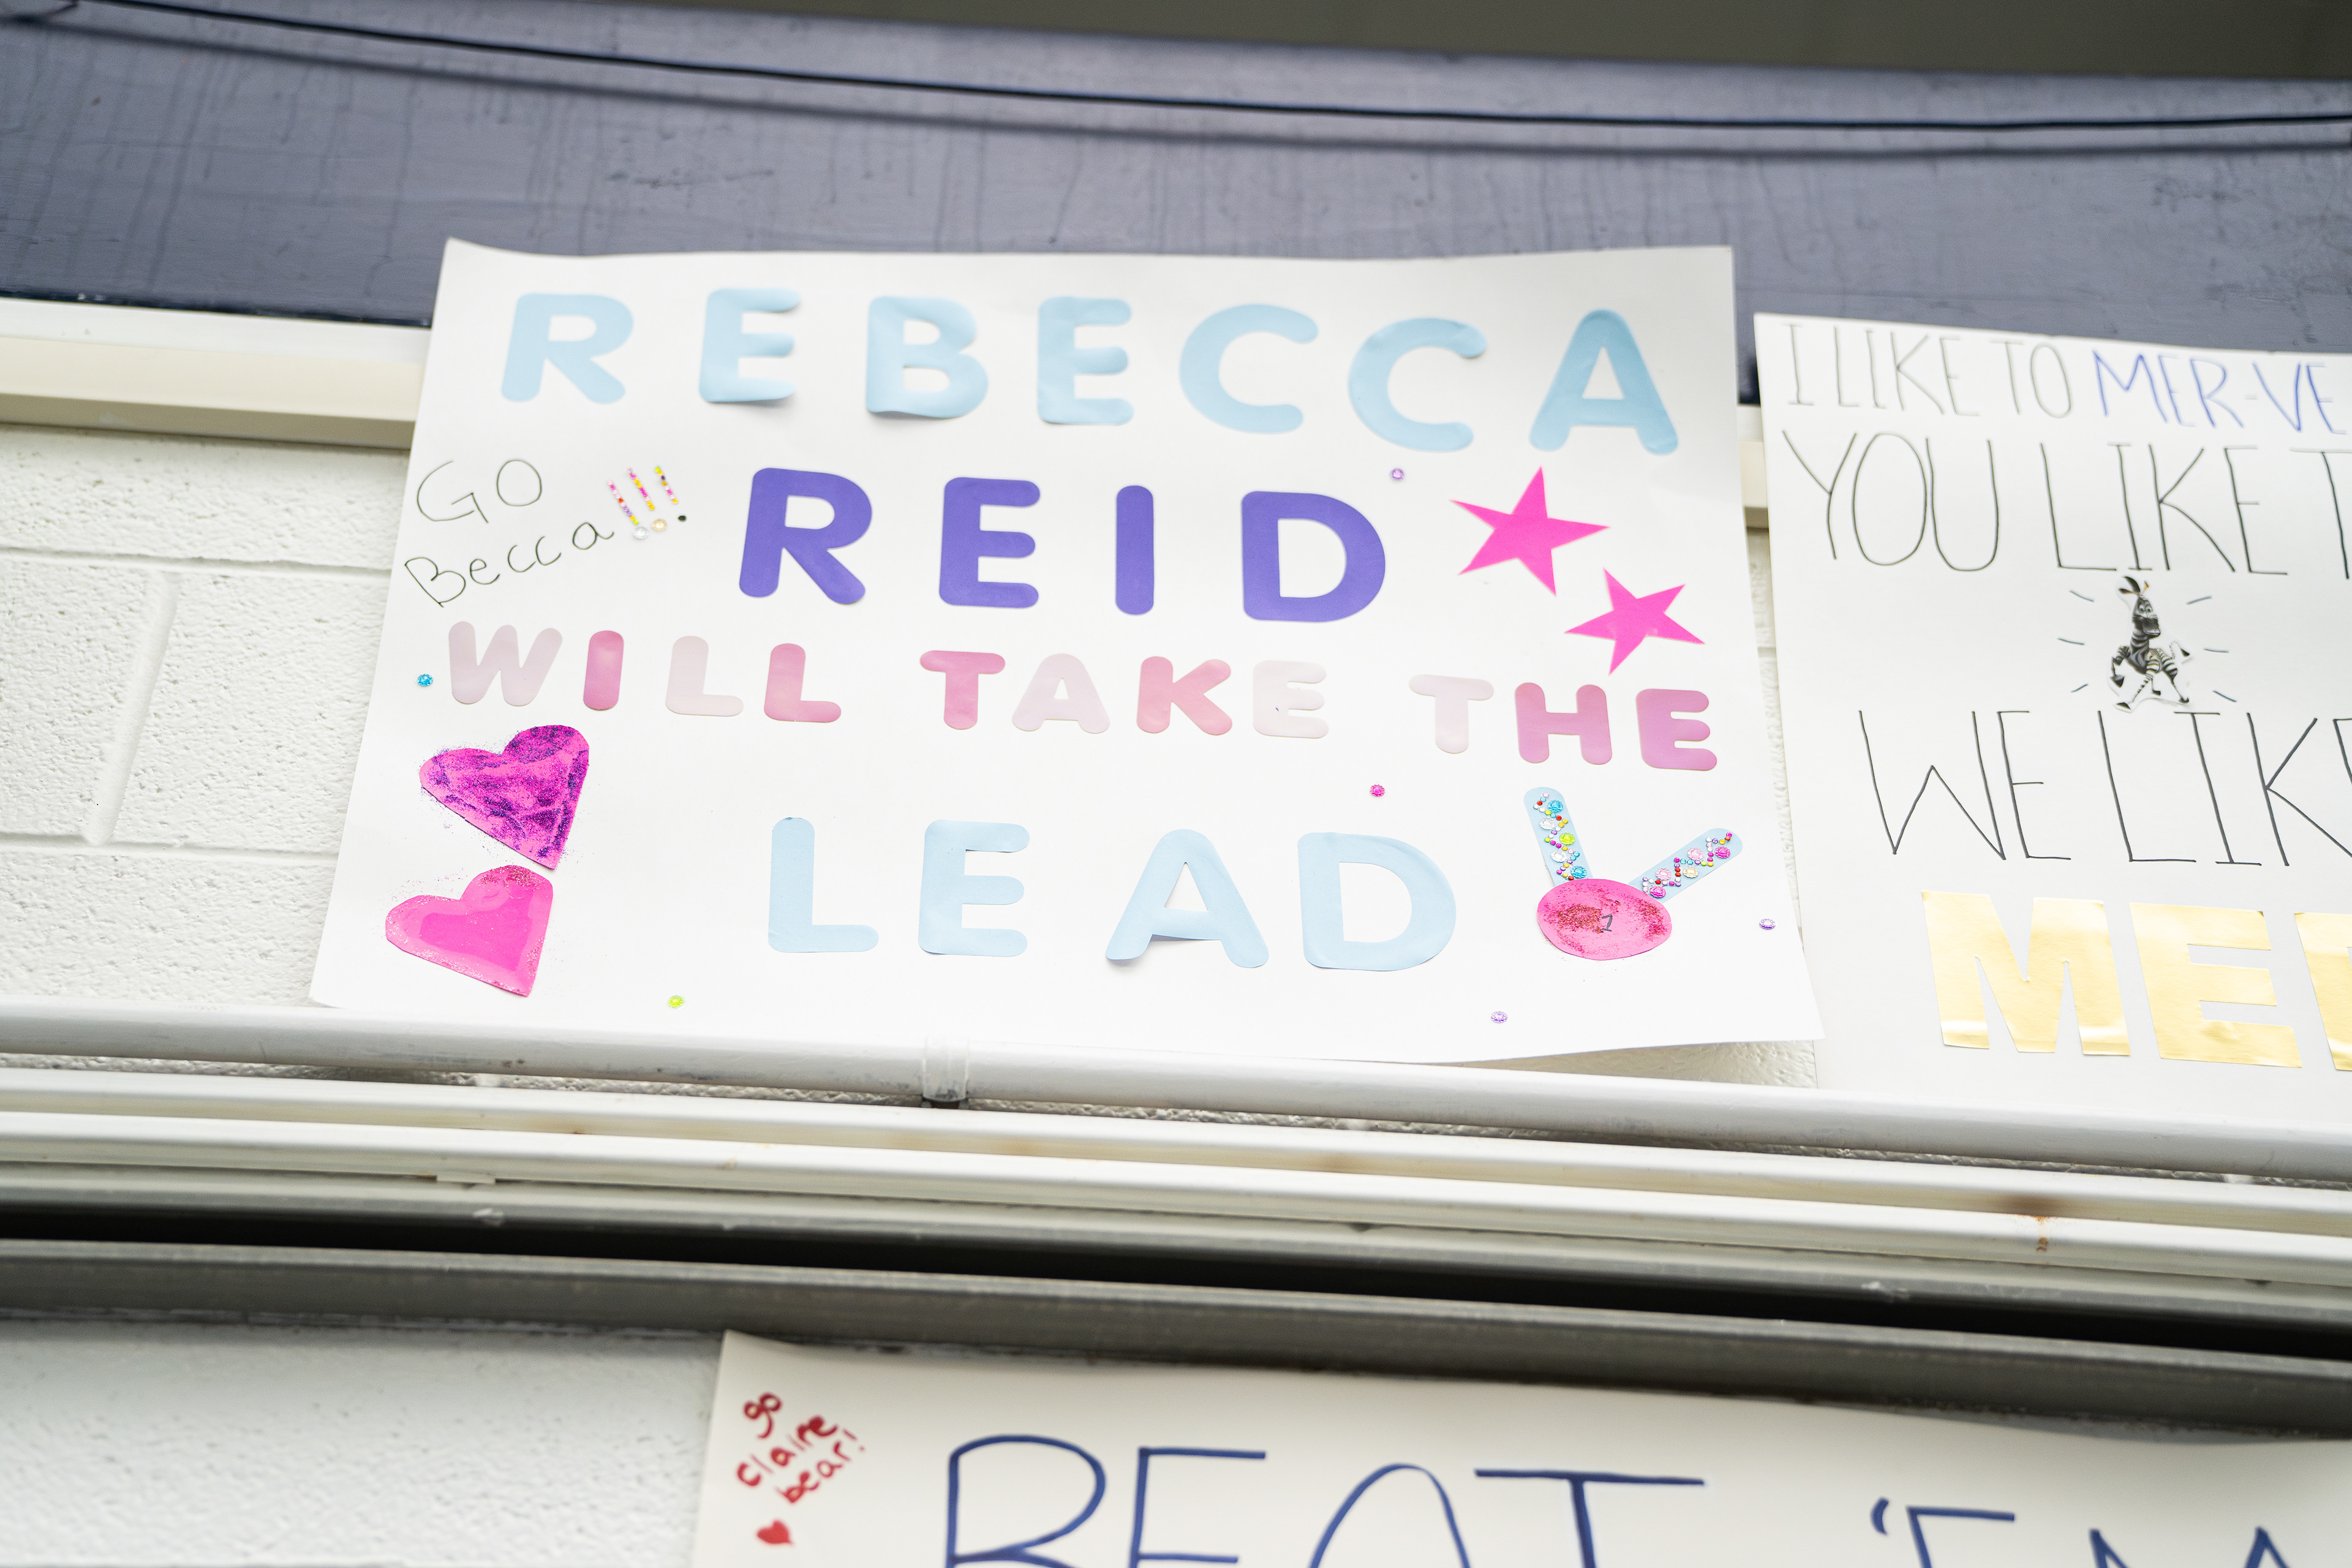 REBECCA
GO
Becca!!!
REID
WILL TAKE THE
LEAD
1
I LIKE TO MER-VE
YOU LIKE T
WE LIK
ME
go
claire
bear!
BEAT 'EM